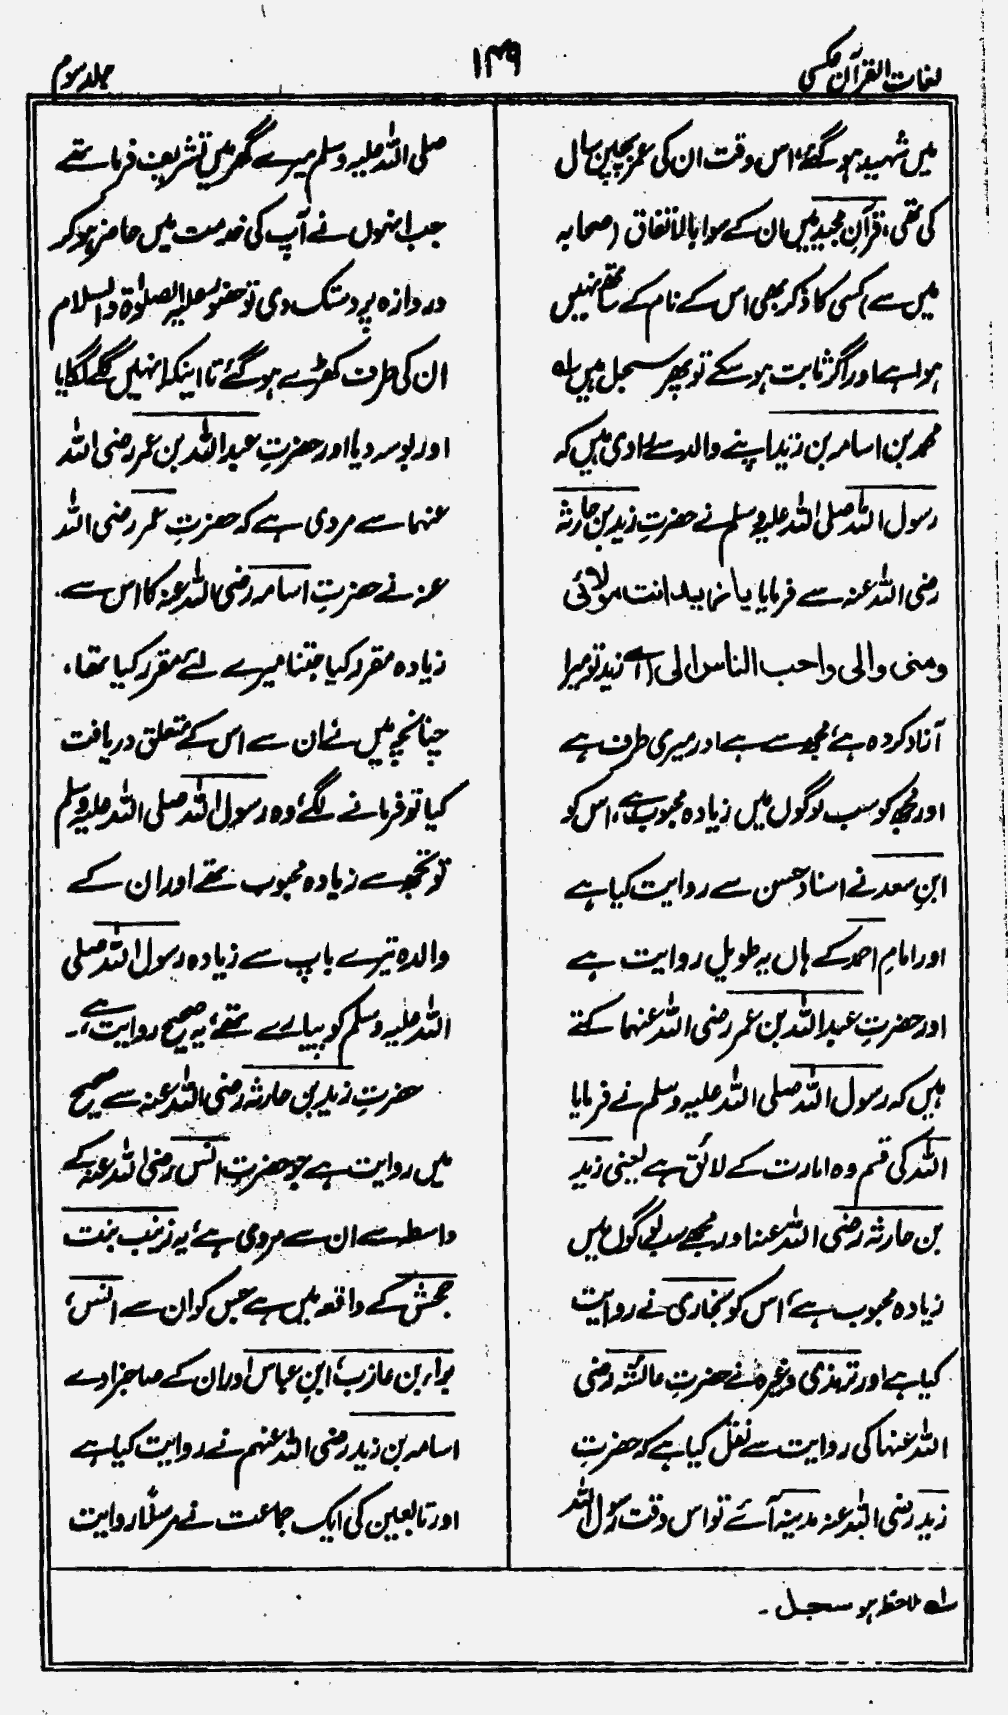 لغات القرآن عکسی
۱۴۹
جلد سوم
میں شہید ہو گئے، اس وقت ان کی عمر پچپن سال
کی تھی، قرآنِ مجید میں ان کے سوا بالاتفاق (صحابہ
میں سے) کسی کا ذکر بھی اس کے نام کے ساتھ نہیں
ہوا ہے اور اگر ثابت ہو سکے تو پھر سجل ہیں لہ
محمد بن اسامہ بن زید اپنے والد سے راوی ہیں کہ
رسول اللہ صلی اللہ علیہ وسلم نے حضرتِ زید بن حارثہ
رضی اللہ عنہ سے فرمایا یا زید انت مولائی
ومنی والی واحب الناس الی (اے زید تو میرا
آزاد کردہ ہے، مجھ سے ہے اور میری طرف ہے
اور مجھ کو سب لوگوں میں زیادہ محبوب ہے، اس کو
ابنِ سعد نے اسناد حسن سے روایت کیا ہے
اور امام احمد کے ہاں یہ طویل روایت ہے
اور حضرتِ عبد اللہ بن عمر رضی اللہ عنہما کہتے
ہیں کہ رسول اللہ صلی اللہ علیہ وسلم نے فرمایا
اللہ کی قسم وہ امارت کے لائق ہے یعنی زید
بن حارثہ رضی اللہ عنہ اور مجھے سب لوگوں میں
زیادہ محبوب ہے، اس کو بخاری نے روایت
کیا ہے اور ترمذی وغیرہ نے حضرتِ عائشہ رضی
اللہ عنہا کی روایت سے نقل کیا ہے کہ حضرتِ
زید رضی اللہ عنہ مدینہ آئے تو اس وقت رسول اللہ
صلی اللہ علیہ وسلم میرے گھر میں تشریف فرما تھے
جب انہوں نے آپ کی خدمت میں حاضر ہو کر
دروازہ پر دستک دی تو حضور علیہ الصلوٰۃ والسلام
ان کی طرف کھڑے ہو گئے تا اینکہ انہیں گلے لگایا
اور بوسہ دیا اور حضرتِ عبد اللہ بن عمر رضی اللہ
عنہما سے مروی ہے کہ حضرتِ عمر رضی اللہ
عنہ نے حضرتِ اسامہ رضی اللہ عنہ کا اس سے
زیادہ مقرر کیا جتنا میرے لئے مقرر کیا تھا،
چنانچہ میں نے ان سے اس کے متعلق دریافت
کیا تو فرمانے لگے، وہ رسول اللہ صلی اللہ علیہ وسلم
کو تجھ سے زیادہ محبوب تھے اور ان کے
والد تیرے باپ سے زیادہ رسول اللہ صلی
اللہ علیہ وسلم کو پیارے تھے، یہ صحیح روایت ہے۔
حضرتِ زید بن حارثہ رضی اللہ عنہ سے صحیح
میں روایت ہے جو حضرتِ انس رضی اللہ عنہ کے
واسطہ سے ان سے مروی ہے، یہ زینب بنت
جحش کے واقعہ میں ہے جس کو ان سے انس،
براء بن عازب، ابنِ عباس اور ان کے صاحبزادے
اسامہ بن زید رضی اللہ عنہم نے روایت کیا ہے
اور تابعین کی ایک جماعت نے مرسلًا روایت
لہ ملاحظہ ہو سجل ۔